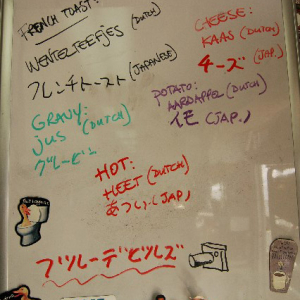 FRENCH TOAST:
WENTELTEEFJES (DUTCH)
フレンチトースト (JAPANESE)
CHEESE:
KAAS (DUTCH)
チーズ (JAP.)
GRAVY:
jus (DUTCH)
グレービー
POTATO:
AARDAPPEL (DUTCH)
イモ (JAP.)
HOT:
HEET (DUTCH)
あつい (JAP.)